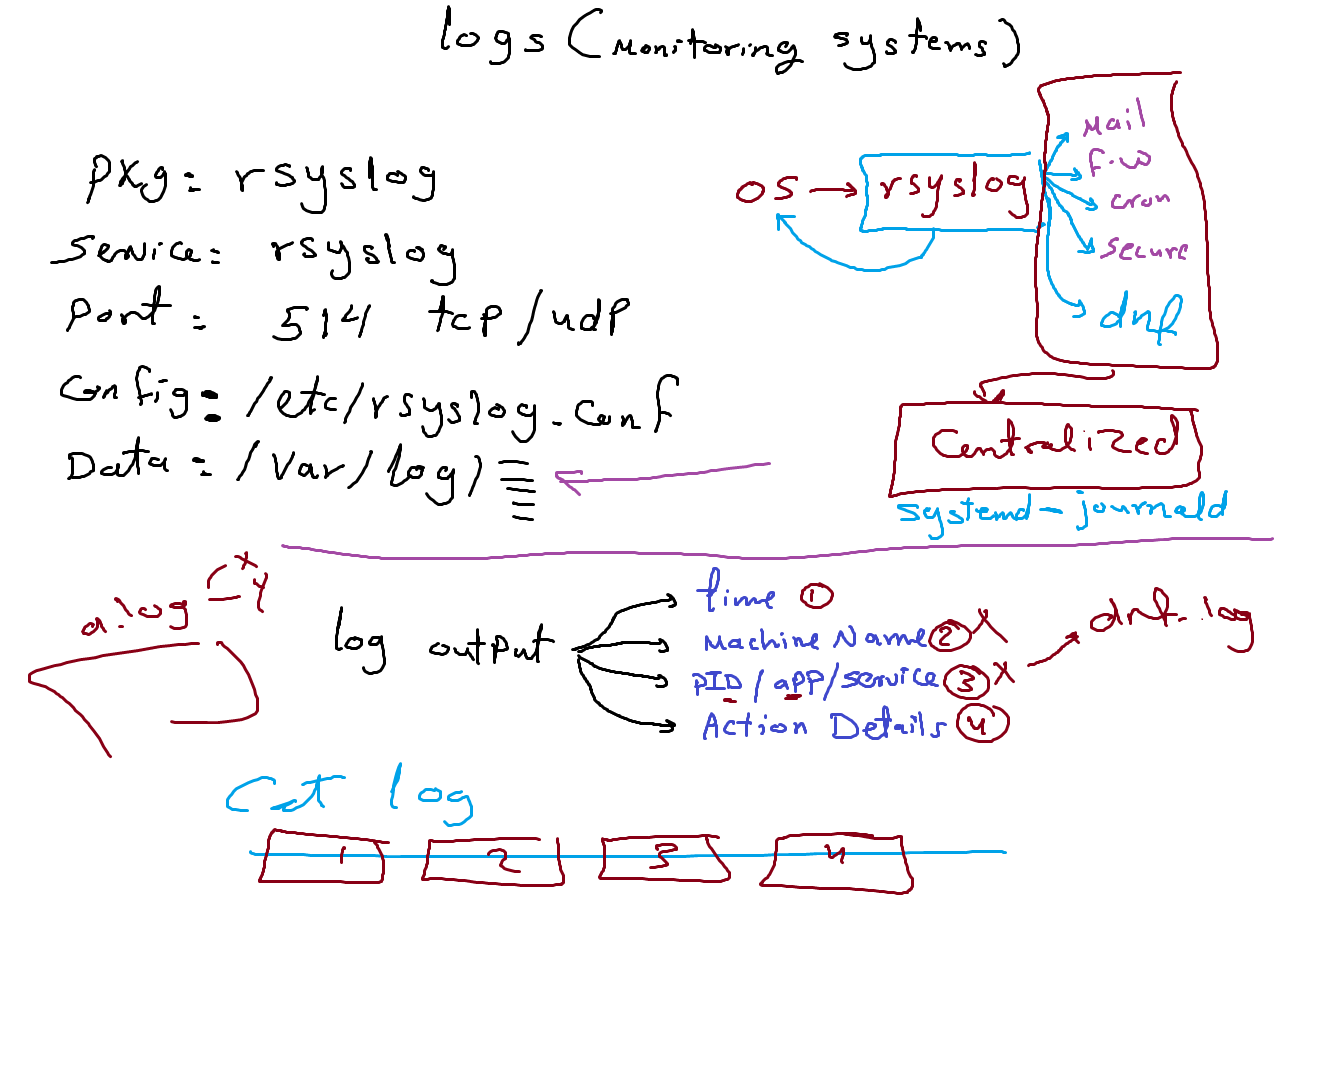 logs (Monitoring systems)
Pkg: rsyslog
Service: rsyslog
Port: 514 tcp/udp
Config: /etc/rsyslog.conf
Data: /var/log/
OS → rsyslog
Mail
F.W
cron
Secure
dnf
Centralized
systemd-journald
a.log
x
y
log output
time 1
Machine Name 2 X
PID/app/service 3 X
dnf.log
Action Details 4
Cat log
1 2 3 4